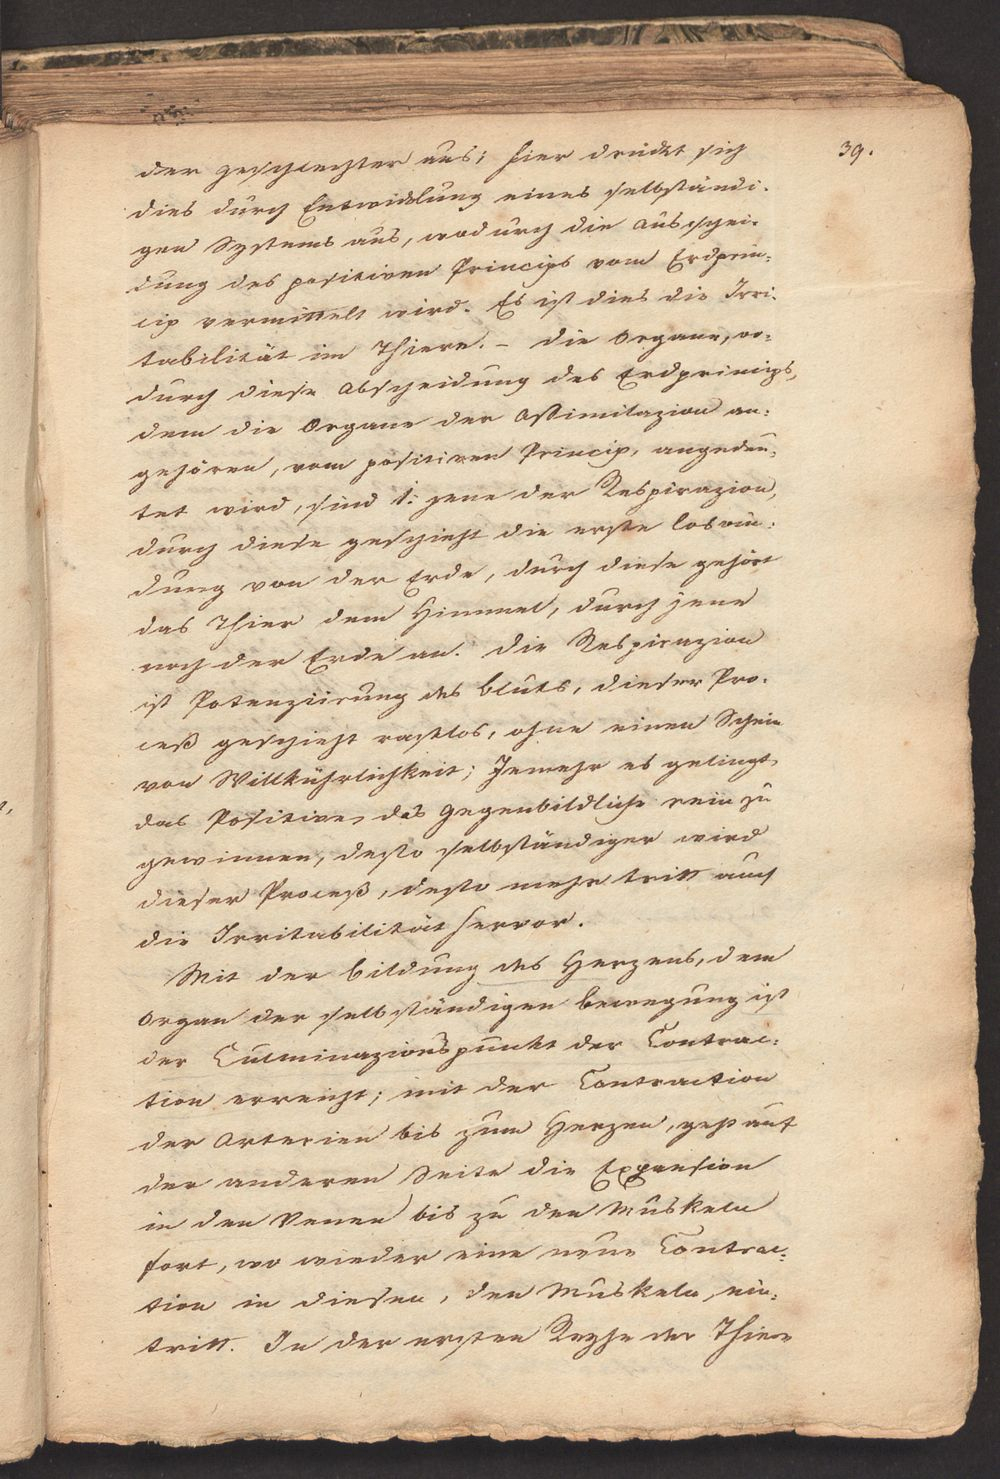 39.
der Geschlechter aus; hier drückt sich
dies durch Entwicklung eines selbständi-
gen Systems aus, wodurch die Ausschei-
dung des positiven Princips vom Erdprin-
cip vermittelt wird. Es ist dies die Irri-
tabilität im Thiere. – Die Organe, wo-
durch diese Abscheidung des Erdprincips,
dem die Organe der Assimilazion an-
gehören, vom positiven Princip, angedeu-
tet wird, sind 1: jene der Respirazion,
durch diese geschieht die erste Loswin-
dung von der Erde, durch diese gehört
das Thier dem Himmel, durch jene
noch der Erde an. Die Respirazion
ist Potenziirung des Bluts, dieser Pro-
ceß geschieht rastlos, ohne einen Schein
von Willkührlichkeit; Jemehr es gelingt
das Positive, das Gegenbildliche rein zu
gewinnen, desto selbständiger wird
dieser Proceß, desto mehr tritt auch
die Irritabilität hervor.
Mit der Bildung des Herzens, dem
Organ der selbständigen Bewegung ist
der Culminazionspunkt der Contrac-
tion erreicht; mit der Contraction
der Arterien bis zum Herzen, geht auf
der anderen Seite die Expansion
in den Venen bis zu den Muskeln
fort, wo wieder eine neue Contrac-
tion in diesen, den Muskeln, ein-
tritt. In der ersten Reyhe der Thiere